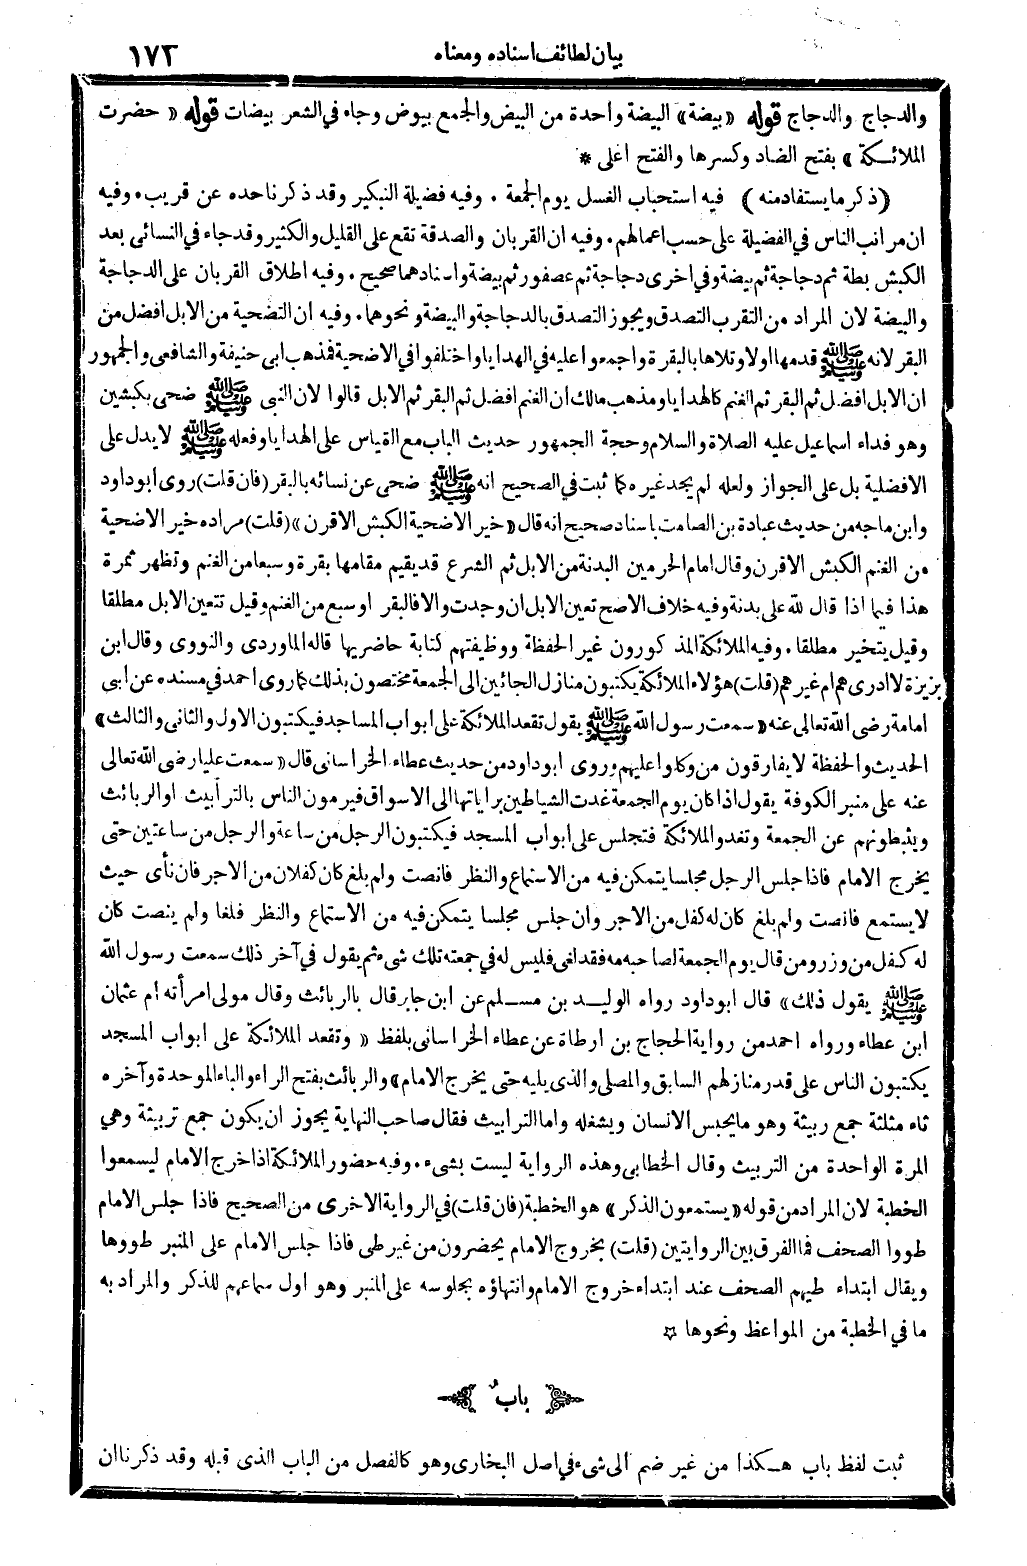 بيان لطائف اسناده ومعناه ١٧٣
والدجاج والدجاج قوله «بيضة» البيضة واحدة من البيض والجمع بيوض وجاء في الشعر بيضات قوله « حضرت
الملائكة » بفتح الضاد وكسرها والفتح اعلى *
(ذكر ما يستفاد منه) فيه استحباب الغسل يوم الجمعة . وفيه فضيلة التبكير وقد ذكرناحده عن قريب . وفيه
ان مراتب الناس في الفضيلة على حسب اعمالهم . وفيه ان القربان والصدقة تقع على القليل والكثير وقدجاء في النسائى بعد
الكبش بطة ثم دجاجة ثم بيضة وفي اخرى دجاجة ثم عصفور ثم بيضة واسنادهما صحيح . وفيه اطلاق القربان على الدجاجة
والبيضة لان المراد من التقرب التصدق ويجوز التصدق بالدجاجة والبيضة ونحوهما . وفيه ان التضحية من الابل افضل من
البقر لانه ﷺ قدمها اولا وتلاها بالبقرة واجمعوا عليه في الهدايا واختلفوا في الاضحية فمذهب ابى حنيفة والشافعى والجمهور
ان الابل افضل ثم البقر ثم الغنم كالهدايا ومذهب مالك ان الغنم افضل ثم البقر ثم الابل قالوا لان النبى ﷺ ضحى بكبشين
وهو فداء اسماعيل عليه الصلاة والسلام وحجة الجمهور حديث الباب مع القياس على الهدايا وفعله ﷺ لا يدل على
الافضلية بل على الجواز ولعله لم يجد غيره كما ثبت في الصحيح انه ﷺ ضحى عن نسائه بالبقر (فان قلت) روى ابوداود
وابن ماجه من حديث عبادة بن الصامت باسناد صحيح انه قال «خير الاضحية الكبش الاقرن» (قلت) مراده خير الاضحية
من الغنم الكبش الاقرن وقال امام الحرمين البدنة من الابل ثم الشرع قد يقيم مقامها بقرة وسبعا من الغنم وتظهر ثمرة
هذا فيما اذا قال لله على بدنة وفيه خلاف الاصح تعين الابل ان وجدت والا فالبقر او سبع من الغنم وقيل تتعين الابل مطلقا
وقيل يتخير مطلقا . وفيه الملائكة المذكورون غير الحفظة ووظيفتهم كتابة حاضريها قاله الماوردى والنووى وقال ابن
بزيزة لا ادرى هم ام غيرهم (قلت) هؤلاء الملائكة يكتبون منازل الجائين الى الجمعة مختصون بذلك كما روى احمد في مسنده عن ابى
امامة رضى الله تعالى عنه «سمعت رسول الله ﷺ يقول تقعد الملائكة على ابواب المساجد فيكتبون الاول والثانى والثالث»
الحديث والحفظة لا يفارقون من وكلوا عليهم وروى ابو داود من حديث عطاء الخراسانى قال «سمعت عليا رضى الله تعالى
عنه على منبر الكوفة يقول اذا كان يوم الجمعة غدت الشياطين براياتها الى الاسواق فيرمون الناس بالترابيث او الربائث
ويثبطونهم عن الجمعة وتغدو الملائكة فتجلس على ابواب المسجد فيكتبون الرجل من ساعة والرجل من ساعتين حتى
يخرج الامام فاذا جلس الرجل مجلسا يتمكن فيه من الاستماع والنظر فانصت ولم يلغ كان كفلان من الاجر فان نأى حيث
لا يستمع فانصت ولم يلغ كان له كفل من الاجر وان جلس مجلسا يتمكن فيه من الاستماع والنظر فلغا ولم ينصت كان
له كفل من وزر ومن قال يوم الجمعة لصاحبه مه فقد لغى فليس له في جمعته تلك شىء ثم يقول في آخر ذلك سمعت رسول الله
ﷺ يقول ذلك» قال ابوداود رواه الوليد بن مسلم عن ابن جابر قال بالربائث وقال مولى امرأته ام عثمان
ابن عطاء ورواه احمد من رواية الحجاج بن ارطاة عن عطاء الخراسانى بلفظ « وتقعد الملائكة على ابواب المسجد
يكتبون الناس على قدر منازلهم السابق والمصلى والذى يليه حتى يخرج الامام» والربائث بفتح الراء والباء الموحدة وآخره
ثاء مثلثة جمع ربيثة وهو ما يحبس الانسان ويشغله واما الترابيث فقال صاحب النهاية يجوز ان يكون جمع تربيثة وهي
المرة الواحدة من التربيث وقال الخطابى وهذه الرواية ليست بشىء . وفيه حضور الملائكة اذا خرج الامام ليسمعوا
الخطبة لان المراد من قوله «يستمعون الذكر» هو الخطبة (فان قلت) في الرواية الاخرى من الصحيح فاذا جلس الامام
طووا الصحف فما الفرق بين الروايتين (قلت) بخروج الامام يحضرون من غير طى فاذا جلس الامام على المنبر طووها
ويقال ابتداء طيهم الصحف عند ابتداء خروج الامام وانتهاؤه بجلوسه على المنبر وهو اول سماعهم للذكر والمراد به
ما في الخطبة من المواعظ ونحوها ☆
باب
ثبت لفظ باب هكذا من غير ضم الى شىء في اصل البخارى وهو كالفصل من الباب الذى قبله وقد ذكرنا ان